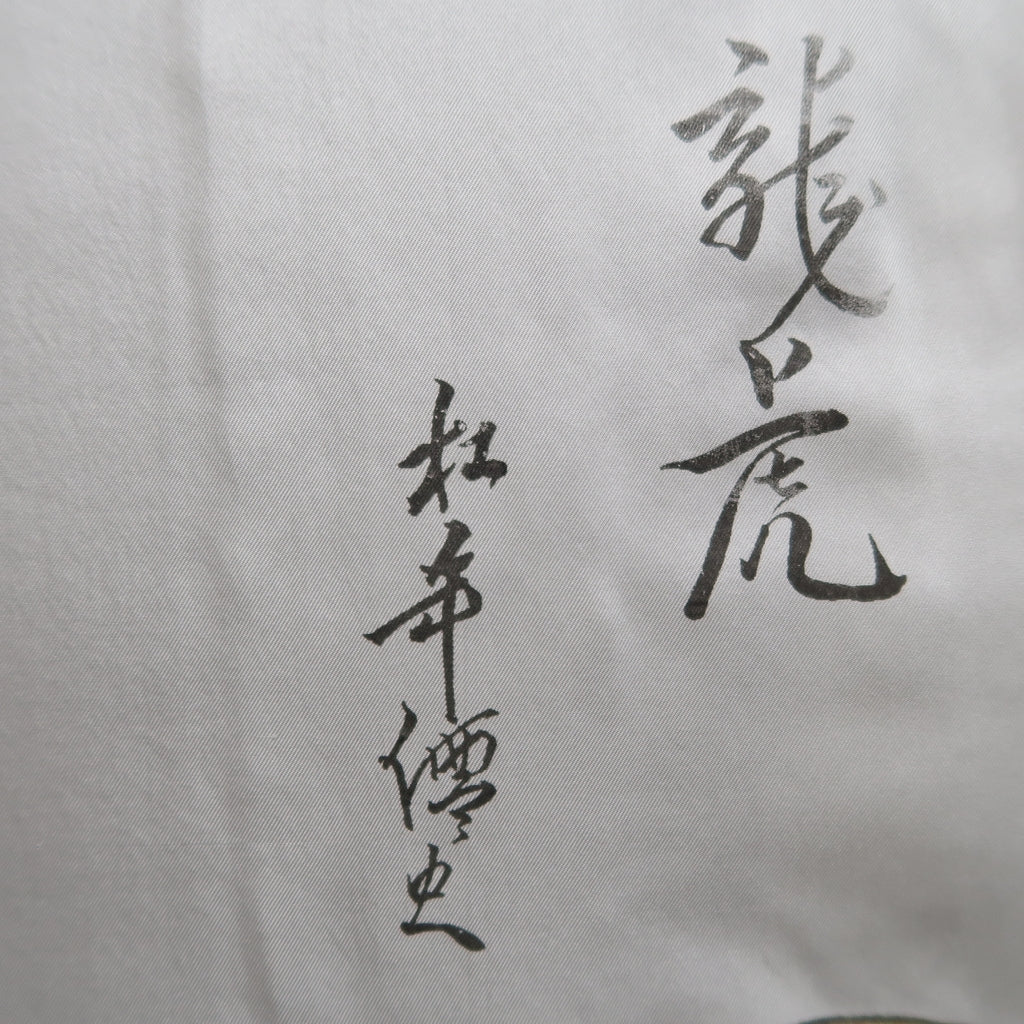 龍虎
松年僊史